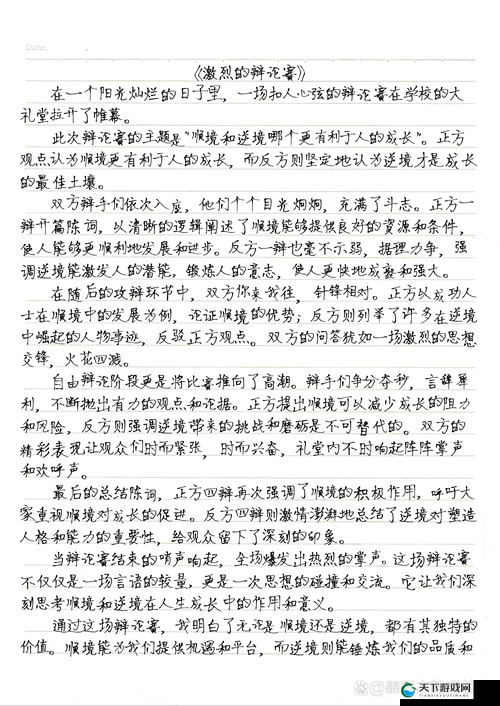 Date.
《激烈的辩论赛》
在一个阳光灿烂的日子里，一场扣人心弦的辩论赛在学校的大
礼堂拉开了帷幕。
此次辩论赛的主题是“顺境和逆境哪个更有利于人的成长”。正方
观点认为顺境更有利于人的成长，而反方则坚定地认为逆境才是成长
的最佳土壤。
双方辩手们依次入座，他们个个目光炯炯，充满了斗志。正方一
辩开篇陈词，以清晰的逻辑阐述了顺境能够提供良好的资源和条件，
使人能够更顺利地发展和进步。反方一辩也毫不示弱，据理力争，强
调逆境能激发人的潜能，锻炼人的意志，使人更快地成熟和强大。
在随后的攻辩环节中，双方你来我往，针锋相对。正方以成功人
士在顺境中的发展为例，论证顺境的优势；反方则列举了许多在逆境
中崛起的人物事迹，反驳正方观点。双方的问答犹如一场激烈的思想
交锋，火花四溅。
自由辩论阶段更是将比赛推向了高潮。辩手们争分夺秒，言辞犀
利，不断抛出有力的观点和论据。正方提出顺境可以减少成长的阻力
和风险，反方则强调逆境带来的挑战和磨砺是不可替代的。双方的
精彩表现让观众们时而紧张，时而兴奋，礼堂内不时响起阵阵掌声
和欢呼声。
最后的总结陈词，正方四辩再次强调了顺境的积极作用，呼吁大
家重视顺境对成长的促进。反方四辩则激情澎湃地总结了逆境对塑造
人格和能力的重要性，给观众留下了深刻的印象。
当辩论赛结束的哨声响起，全场爆发出热烈的掌声。这场辩论赛
不仅仅是一场言语的较量，更是一次思想的碰撞和交流。它让我们深
刻思考顺境和逆境在人生成长中的作用和意义。
通过这场辩论赛，我明白了无论是顺境还是逆境，都有其独特的
价值。顺境能为我们提供机遇和平台，而逆境则能锤炼我们的品质和
天下游戏网